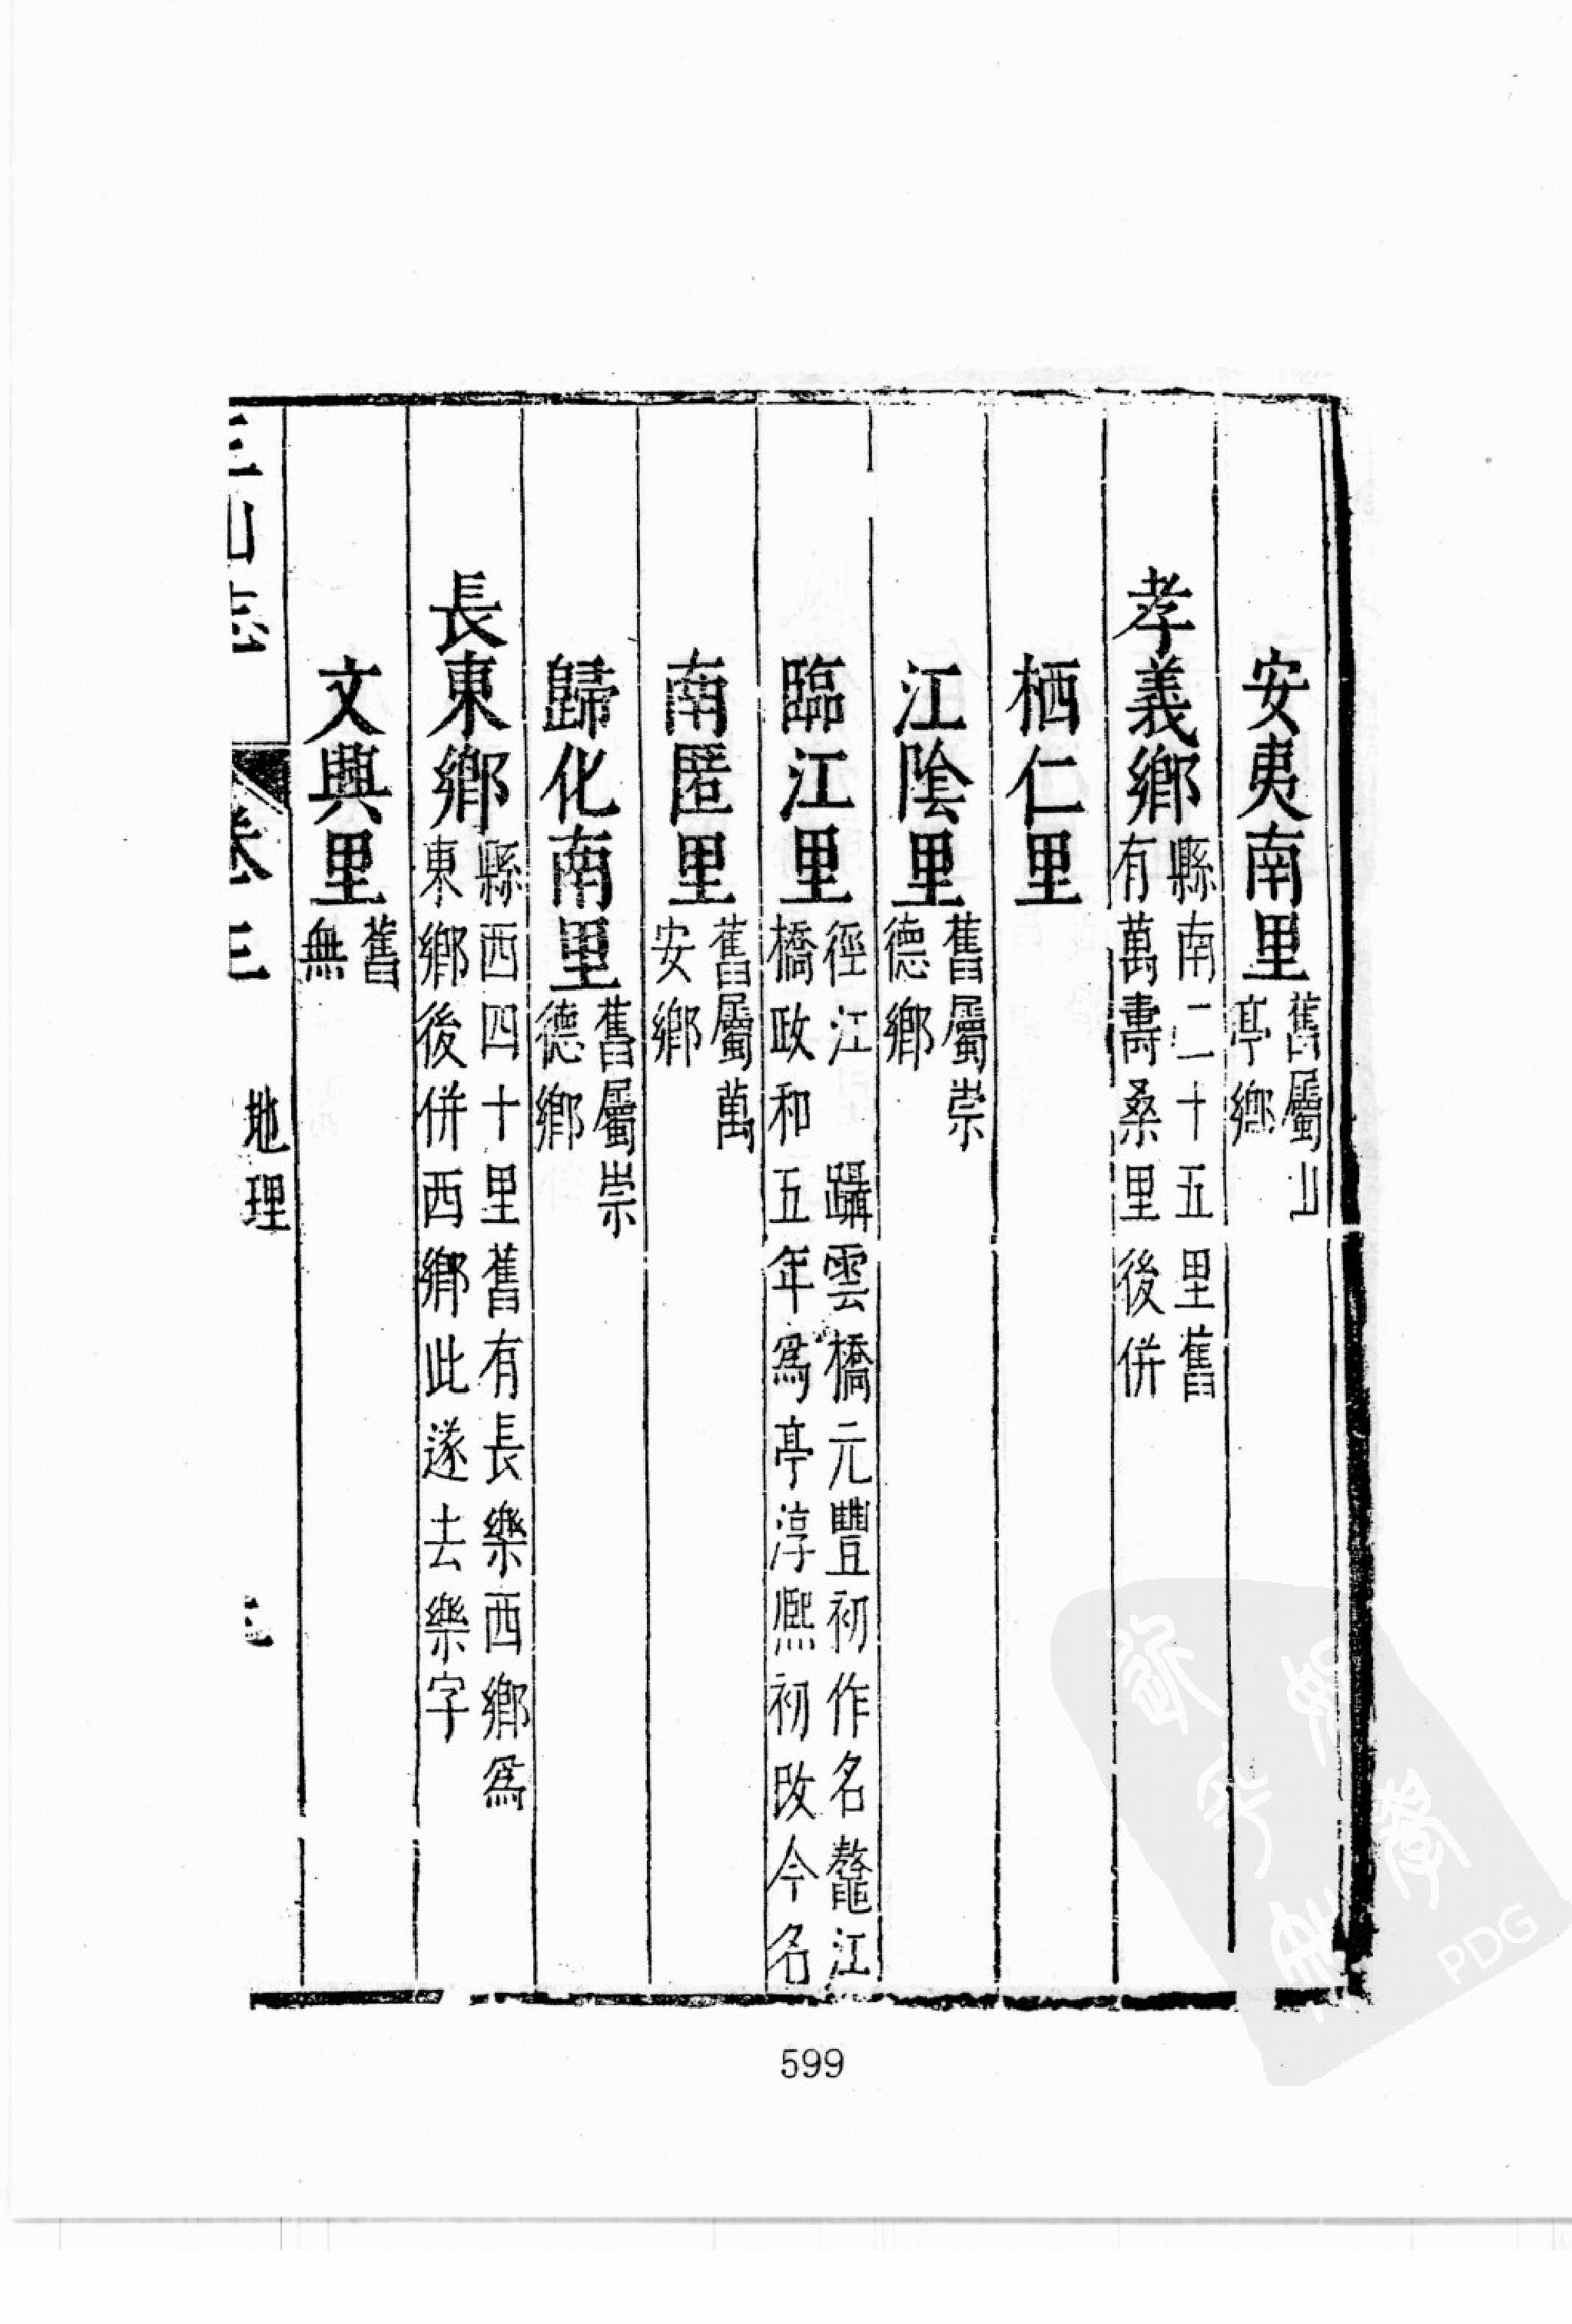 安夷南里舊屬山亭鄉
孝義鄉縣南二十五里舊有萬壽桑里後併
栖仁里
江陰里舊屬崇德鄉
臨江里徑江 躡雲橋元豐初作名鼇江橋政和五年爲亭淳熙初改今名
南匿里舊屬萬安鄉
歸化南里舊屬崇德鄉
長東鄉縣西四十里舊有長樂西鄉爲東鄉後併西鄉此遂去樂字
文興里舊無
三山志 卷三 地理
599
PDG